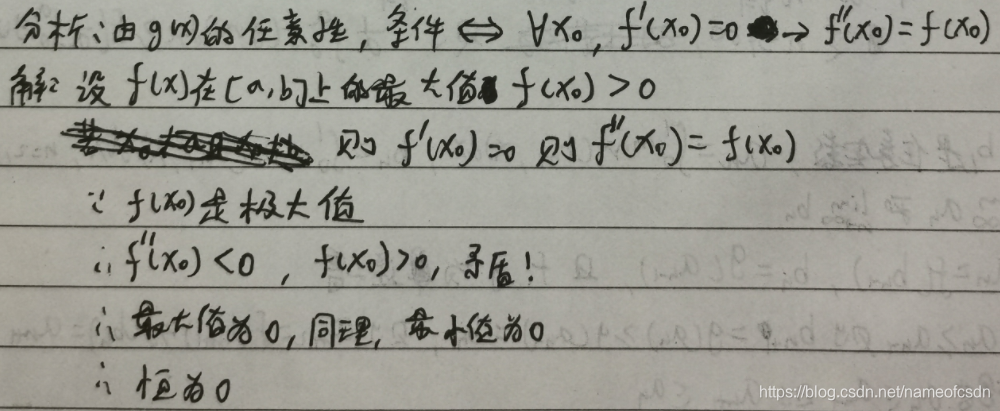 分析：由g(x)的任意性，条件 ⇔ ∀x₀, f'(x₀)=0 → f''(x₀)=f(x₀)
解：设 f(x)在[a,b]上的最大值 f(x₀)>0
则 f'(x₀)=0 则 f''(x₀)=f(x₀)
∵ f(x₀)是极大值
∴ f''(x₀)<0 , f(x₀)>0, 矛盾！
∴ 最大值为0, 同理, 最小值为0
∴ 恒为0
https://blog.csdn.net/nameofcsdn